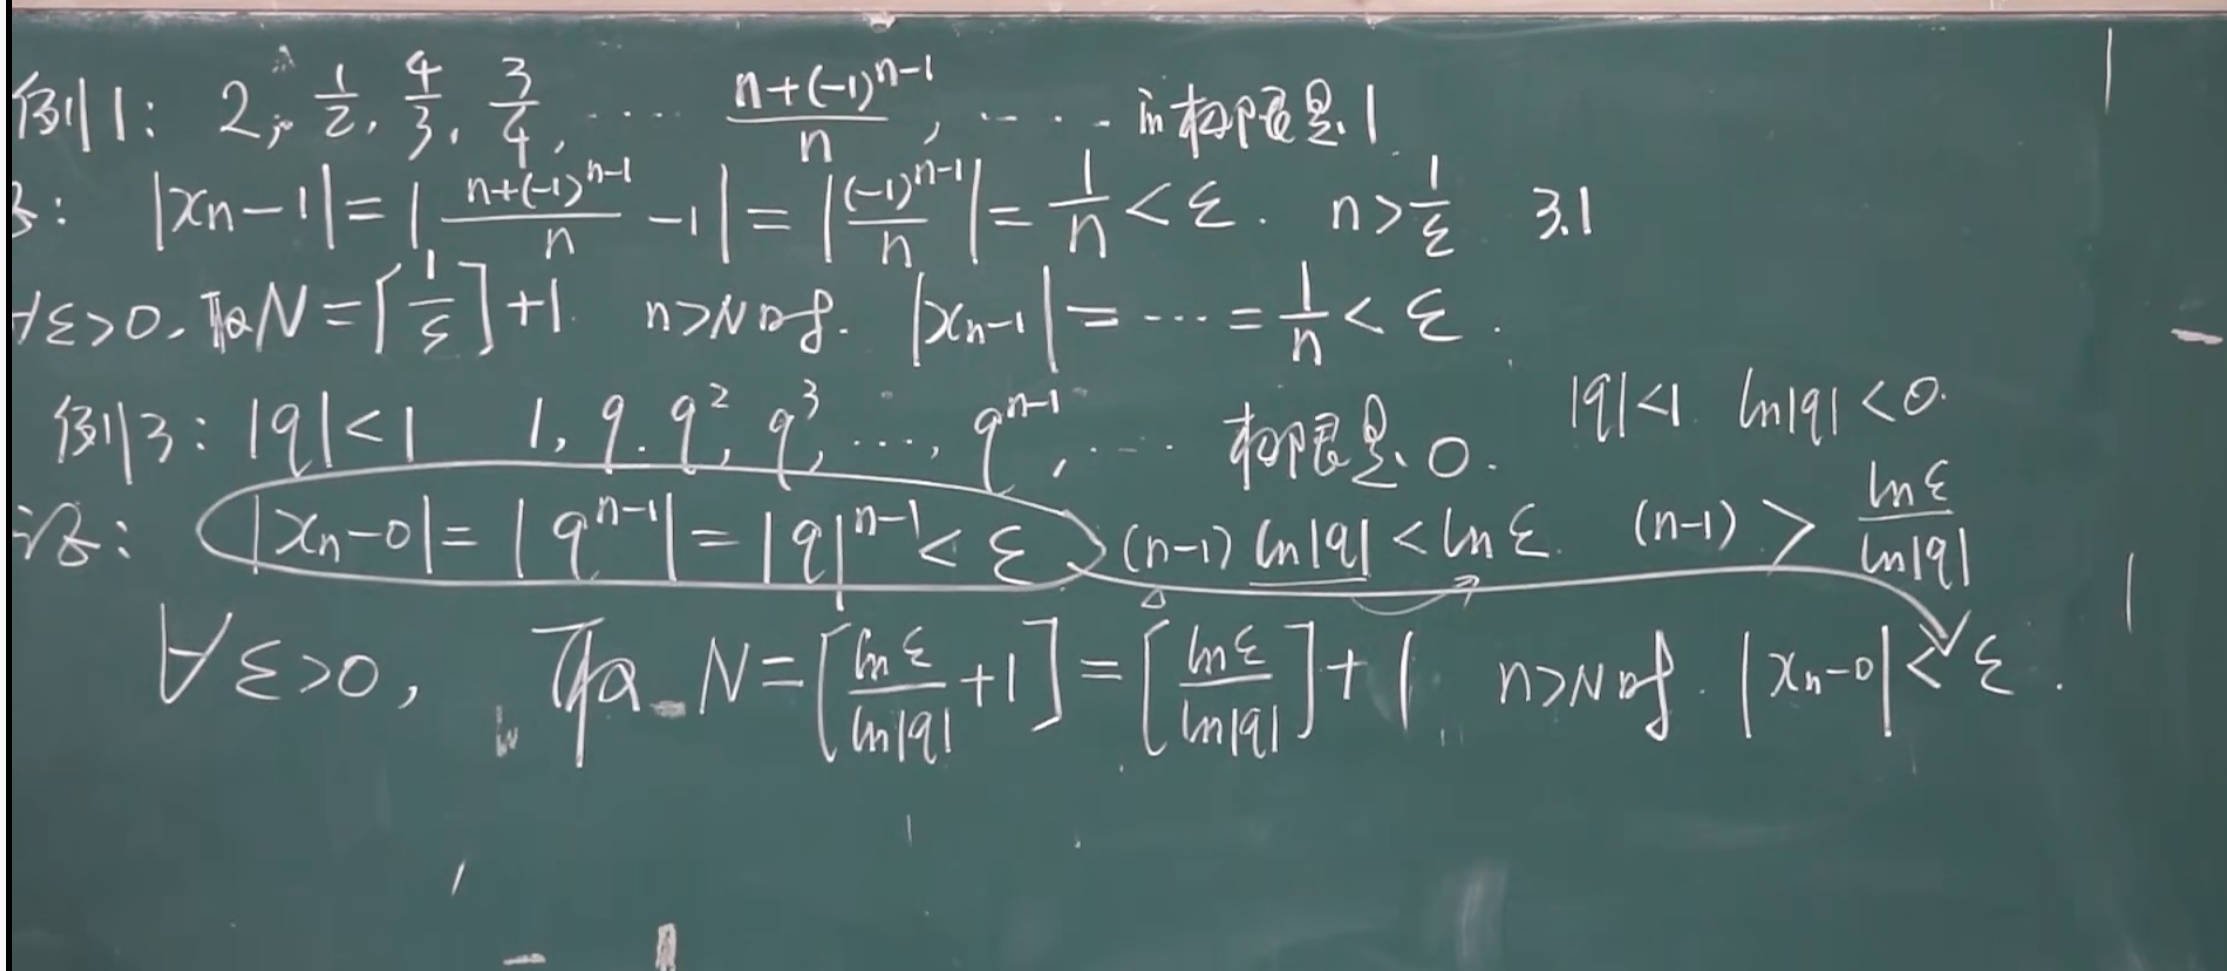 例1: 2, 1/2, 4/3, 3/4, ...... (n+(-1)^{n-1})/n, ...... 的极限是1
证: |x_n-1|=|(n+(-1)^{n-1})/n -1|=|(-1)^{n-1}/n|=1/n<ε. n>1/ε 3.1
∀ε>0, 取N=[1/ε]+1 n>N时. |x_n-1|=...=1/n<ε.
例3: |q|<1 1, q. q^2, q^3, ..., q^{n-1}, ... 极限是0. |q|<1 ln|q|<0.
证: |x_n-0|=|q^{n-1}|=|q|^{n-1}<ε (n-1)ln|q|<lnε. (n-1)>lnε/ln|q|
∀ε>0, 取N=[lnε/ln|q| +1]=[lnε/ln|q|]+1 n>N时. |x_n-0|<ε.